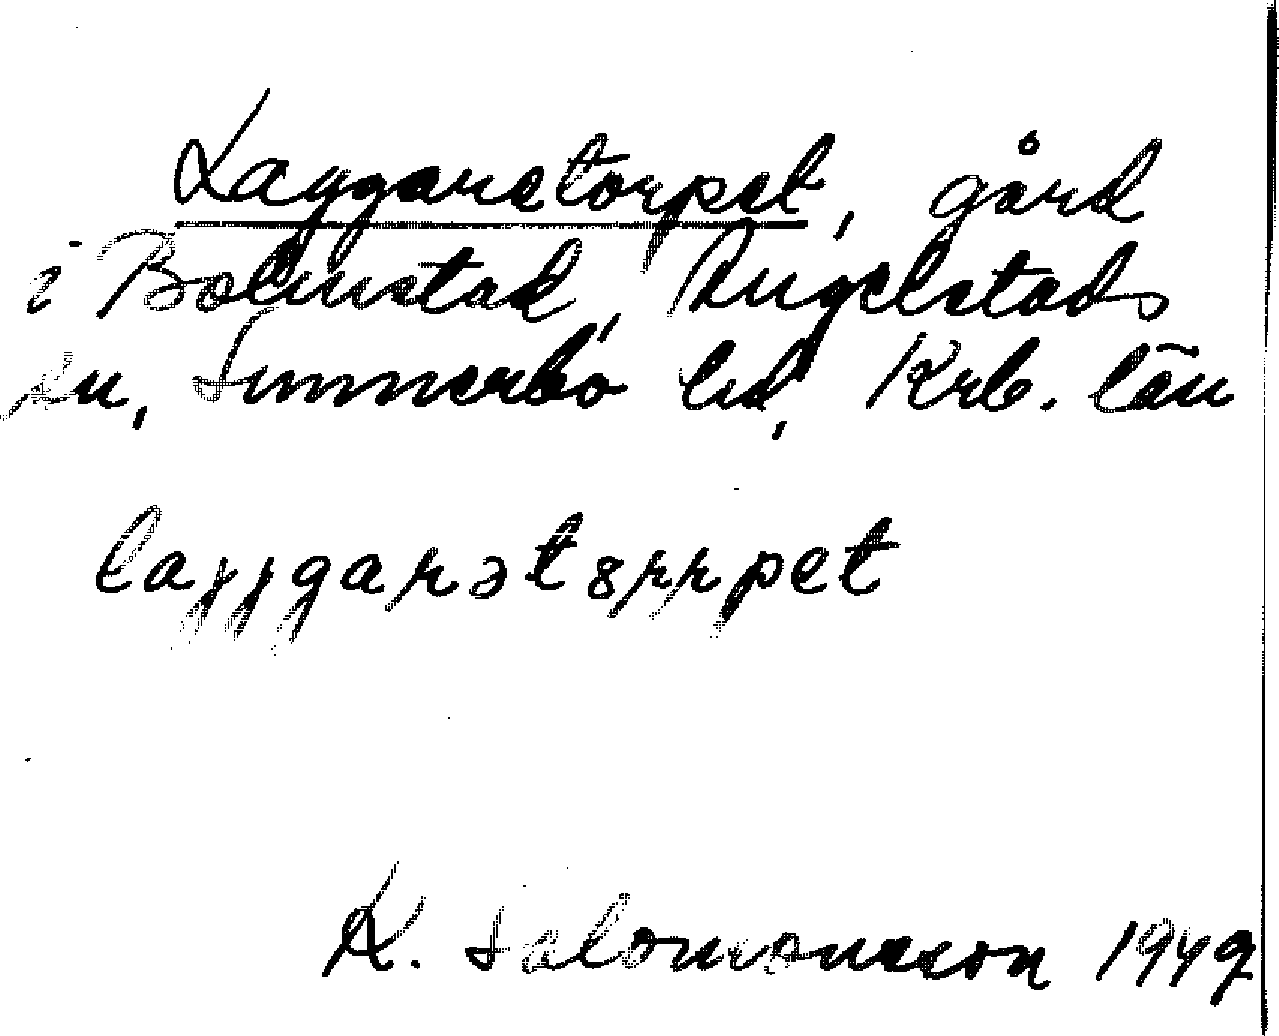 Laggaretorpet, gård
i Bolmstad, Angelstads
sn, Sunnerbo hd, Krb. län
laggarətȣrrpet
K. Salomonsson 1949